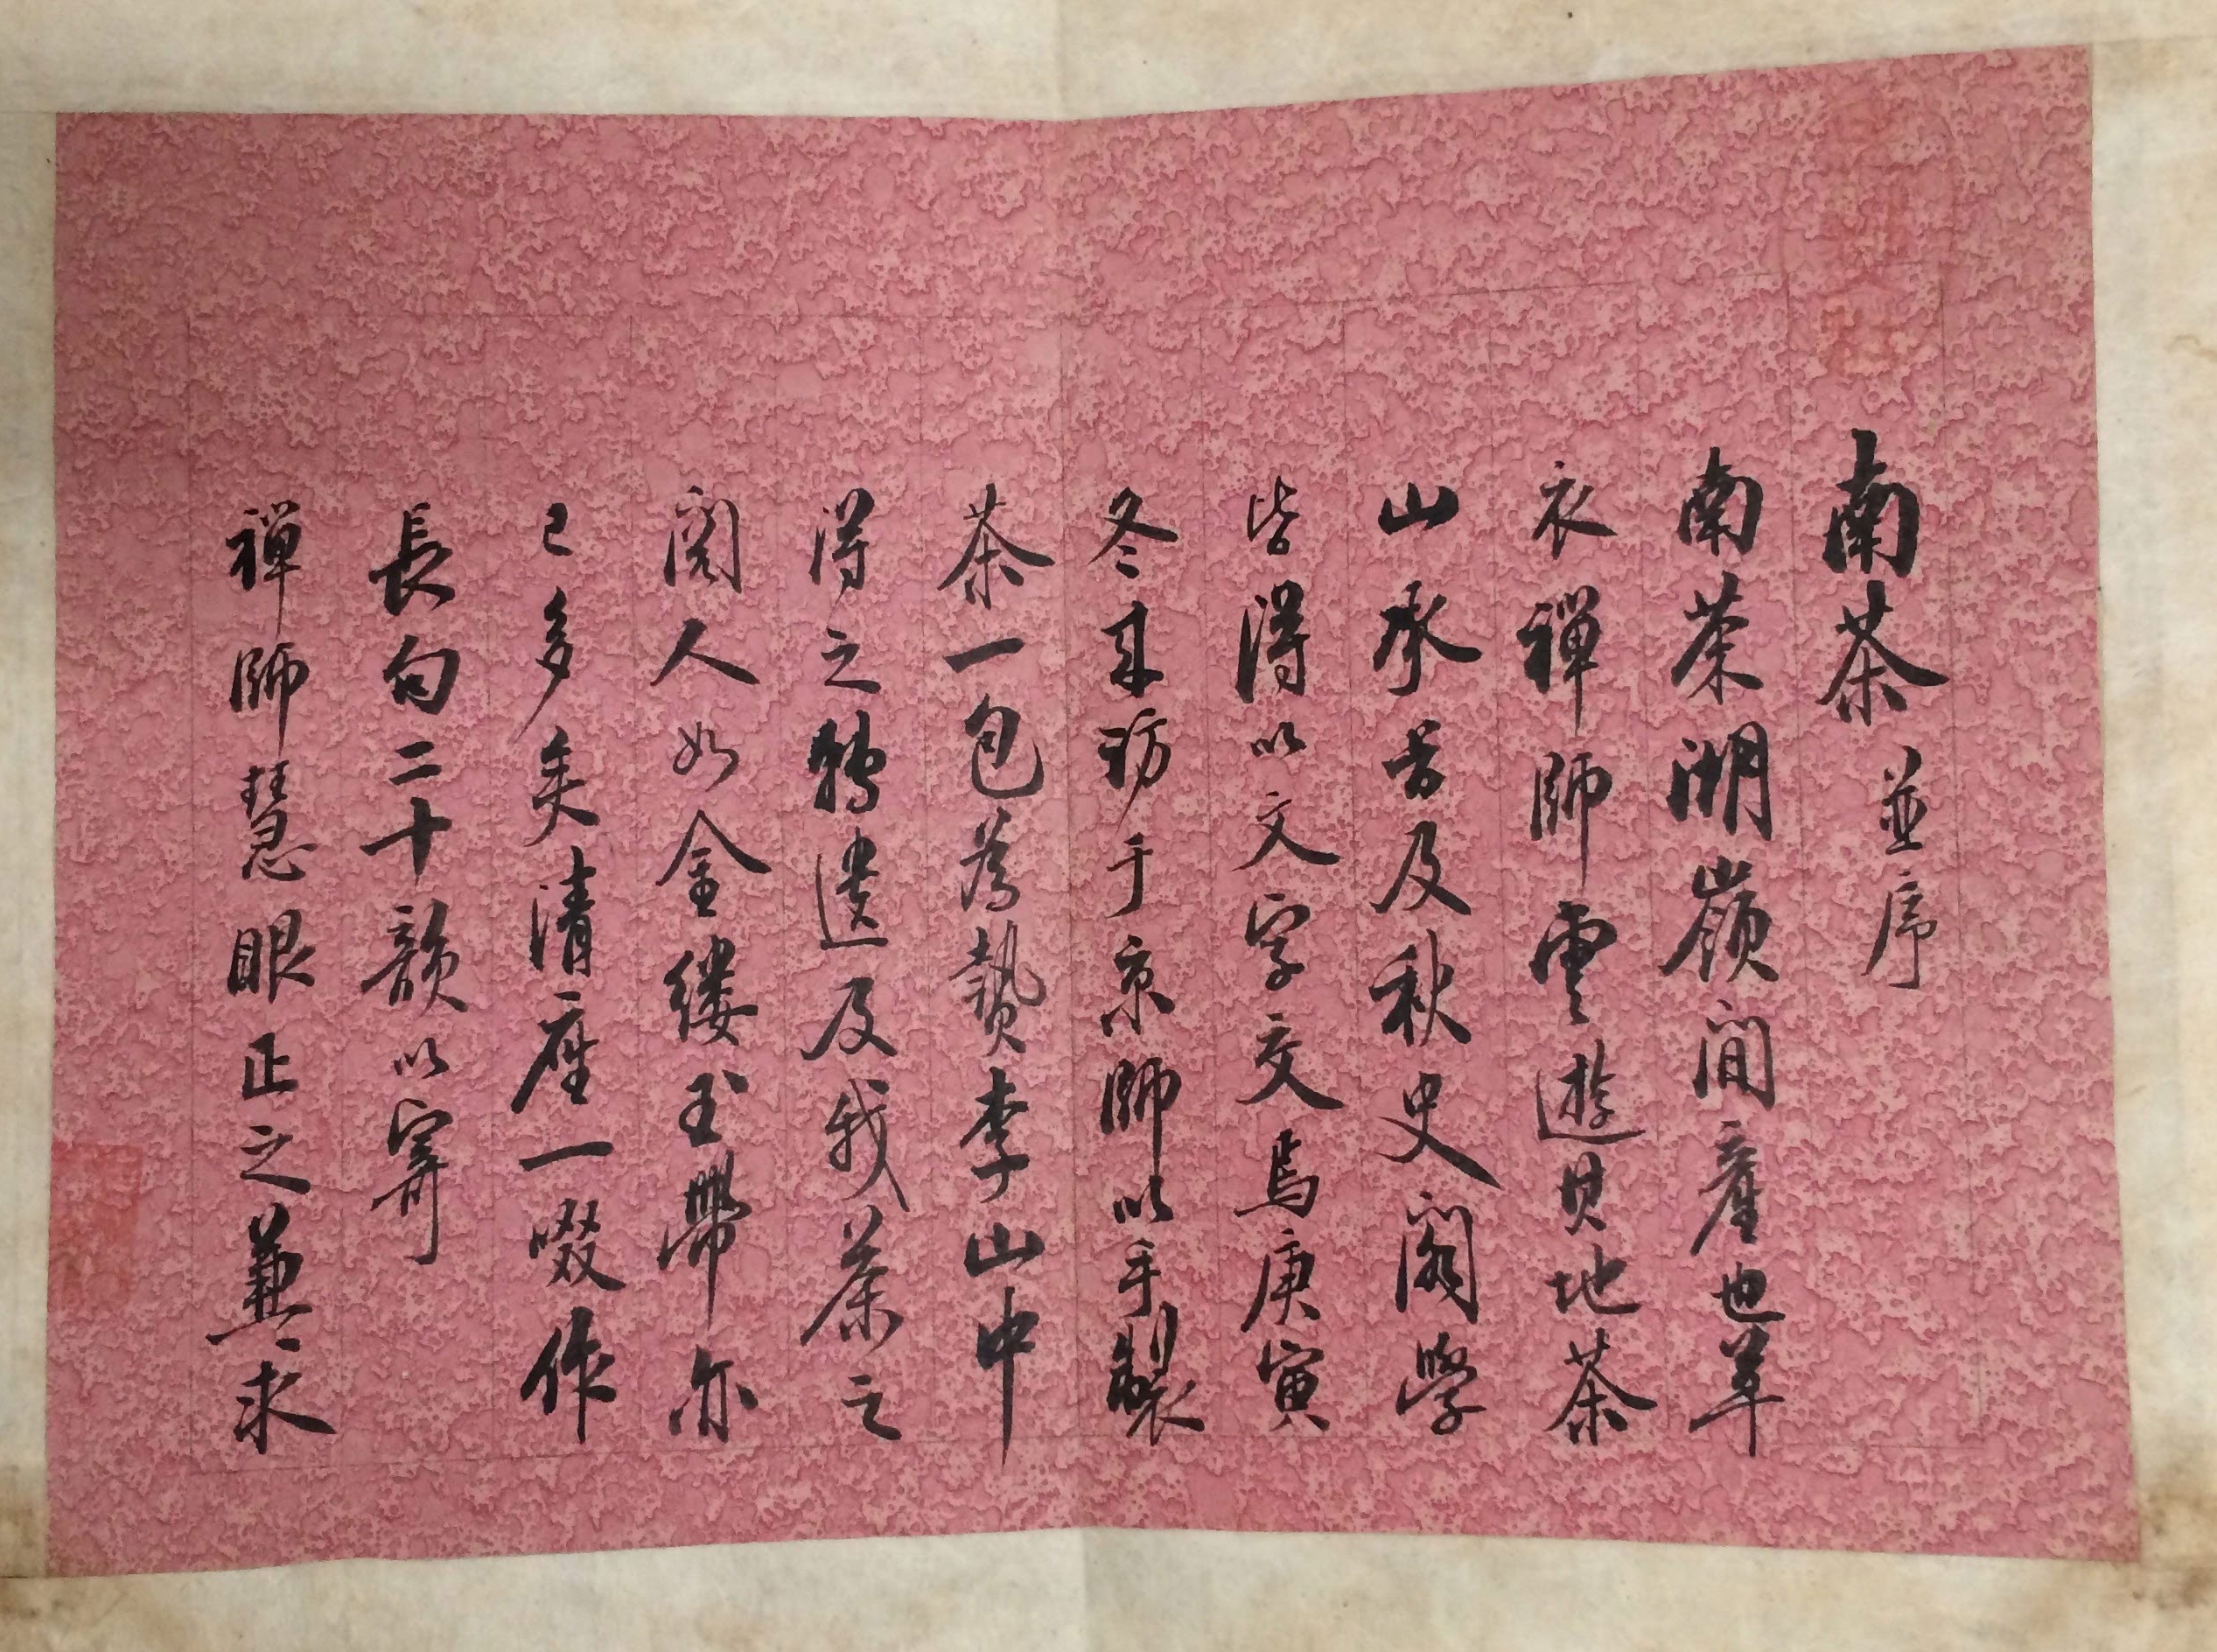 南茶 並序
南茶湖嶺間産也草
衣禪師雲遊其地茶
山承旨及秋史閣學
皆得以文字交焉庚寅
冬來訪于京師以手製
茶一包爲贄李山中
得之轉遺及我茶之
閱人如金縷玉帶亦
已多矣清座一啜作
長句二十韻以寄
禪師慧眼正之兼求